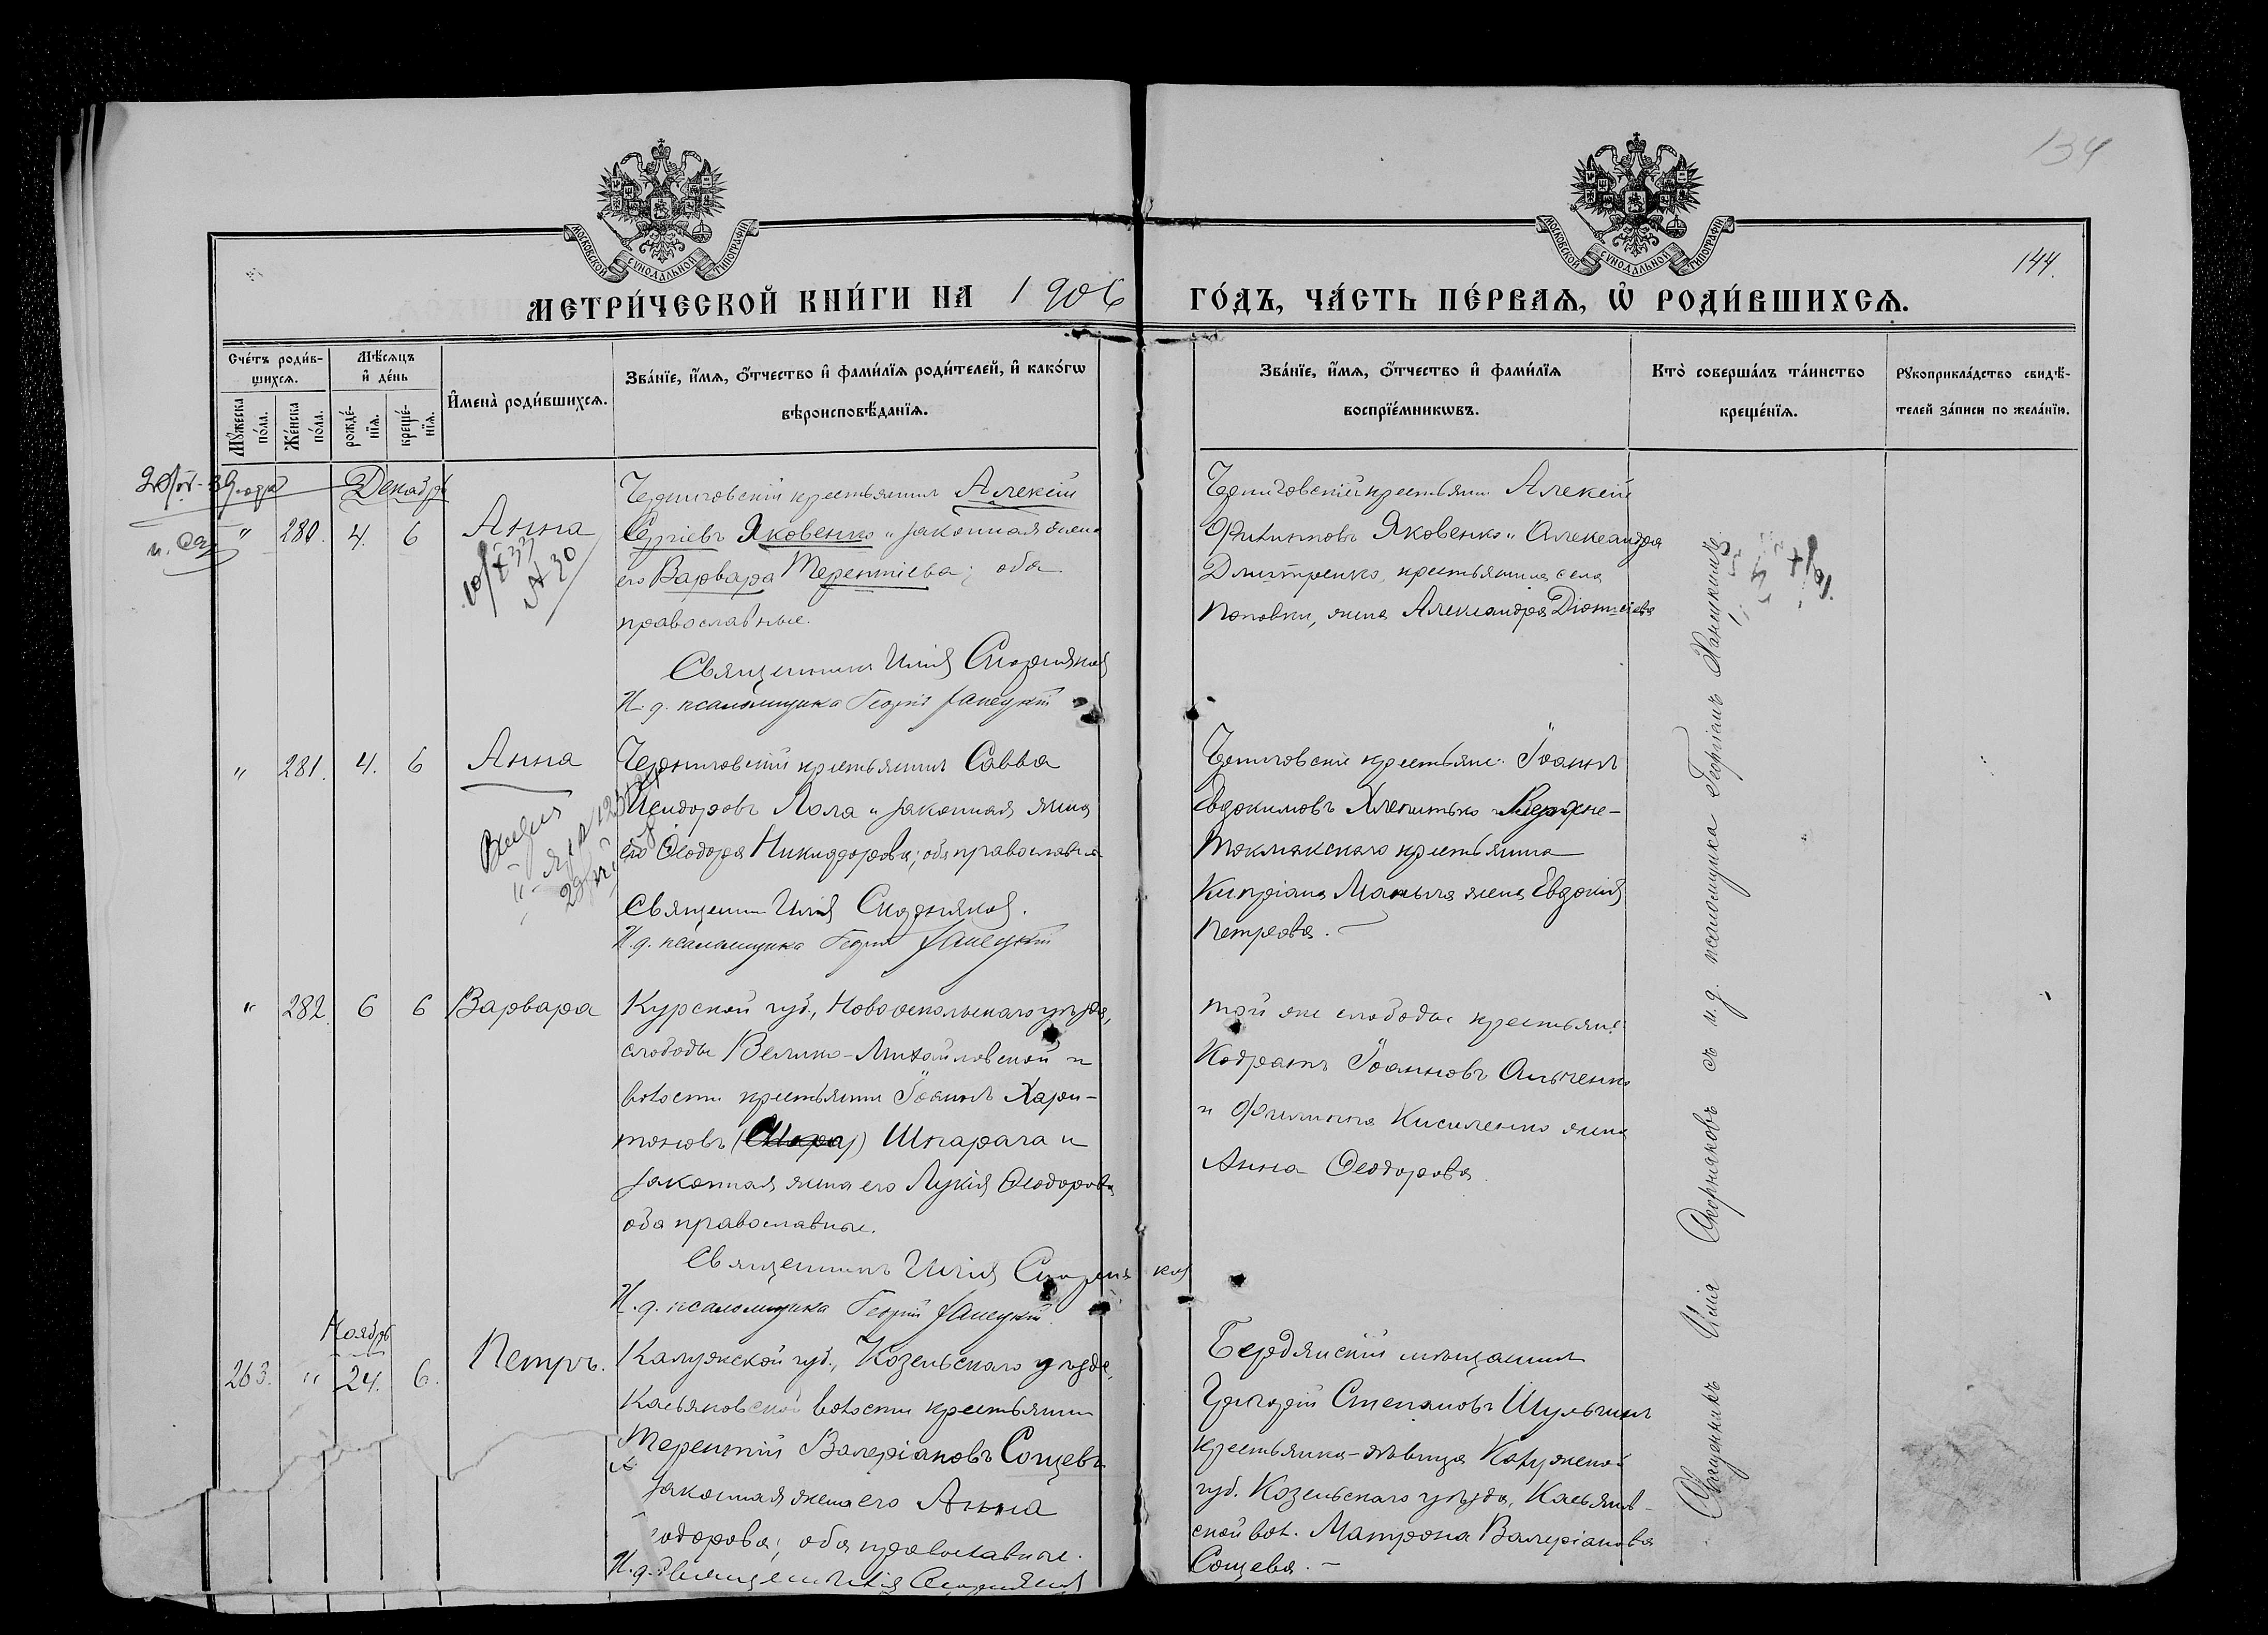 134
МОСКОВСКОЙ СѴНОДАЛЬНОЙ ТИПОГРАФІИ
МОСКОВСКОЙ СѴНОДАЛЬНОЙ ТИПОГРАФІИ
144.
МЕТРИ́ЧЕСКОЙ КНИ́ГИ НА 1906 ГО́ДЪ, ЧА́СТЬ ПЕ́РВАѦ, Ѽ РОДИ́ВШИХСѦ.
Сче́тъ роди́в-
шихсѧ.
Мꙋ́жеска по́ла.
Же́нска по́ла.
Мѣ́сѧцъ
и҆ де́нь
рожде́-
нїѧ.
креще́-
нїѧ.
И҆мена̀ роди́вшихсѧ.
Зва́нїе, и҆́мѧ, ѻ҆́тчество и҆ фами́лїѧ роди́телей, и҆ како́гѡ
вѣроисповѣ́данїѧ.
Зва́нїе, и҆́мѧ, ѻ҆́тчество и҆ фами́лїѧ
воспрїе́мникѡвъ.
Кто̀ соверша́лъ та́инство
креще́нїѧ.
Рꙋкоприкла́дство свидѣ́-
телей за́писи по жела́нїю.
Декабрь
" 280. 4. 6 Анна
Черниговскій крестьянинъ Алексій
Сергіевъ Яковенко и законная жена
его Варвара Терентіева; оба
православные.
Священникъ Илія Скорняковъ
И. д. псаломщика Георгій
Черниговскій крестьян. Алексій
Филипповъ Яковенко и Александра
Дмитренко, крестьянина села
Поповки, жена Александра Діонисіева
" 281. 4. 6 Анна
Черниговскій крестьянинъ Савва
Исидоровъ Лола и законная жена
его Ѳеодора Никифорова; оба православн.
Священник Илія Скорняковъ.
И. д. псаломщика Георгій
Черниговскій крестьян. Іоаннъ
Евдокимовъ и Верхне-
Токмакскаго крестьянина
Кипріана жена Евдокія
Петрова.
" 282. 6 6 Варвара
Курской губ., Новооскольскаго уѣзда,
слободы Велико-Михайловской и
волости крестьянинъ Іоаннъ Хари-
тоновъ Шпарага и
законная жена его Лукія Ѳеодорова
оба православные.
Священникъ Илія Скорняковъ
И. д. псаломщика Георгій
той же слободы крестьяне
Кодратъ Іоанновъ
и Филиппа Кисиленко жена
Анна Ѳеодорова.
Ноябрь
263. " 24. 6. Петръ.
Калужской губ., Козельскаго уѣзда,
Касьяновской волости крестьянинъ
Терентій Валеріановъ Сощевъ
и законная жена его Анна
одорова; оба православные.
Бердянскій мѣщанинъ
Григорій Степановъ Шульгинъ
крестьянка-дѣвица Калужской
губ. Козельскаго уѣзда, Касьянов-
ской вол. Матрона Валеріанова
Сощева.
Священникъ Илія Скорняковъ съ и. д. псаломщика Георгіемъ